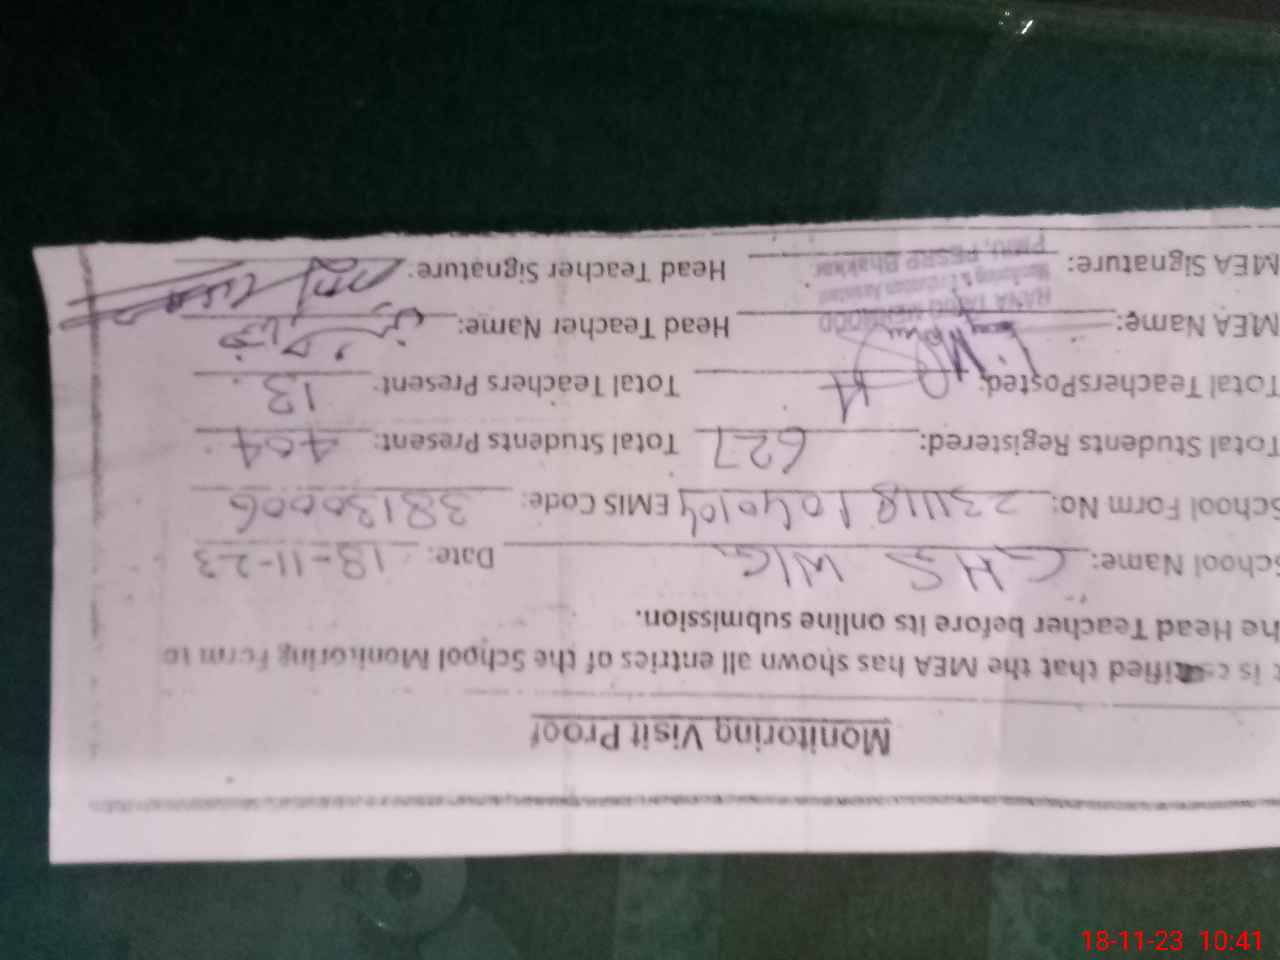 Monitoring Visit Proof
t is certified that the MEA has shown all entries of the School Monitoring Form to
he Head Teacher before its online submission.
School Name: GHS W/G Date: 18-11-23
School Form No: EMIS Code: 38130006
Total Students Registered: 627 Total Students Present: 404
Total TeachersPosted: Total Teachers Present: 13
MEA Name: Head Teacher Name:
RANA TARIQ MEHMOOD
Monitoring & Evaluation Assistant
PMIU, PESRP Bhakkar
MEA Signature: Head Teacher Signature:
18-11-23 10:41